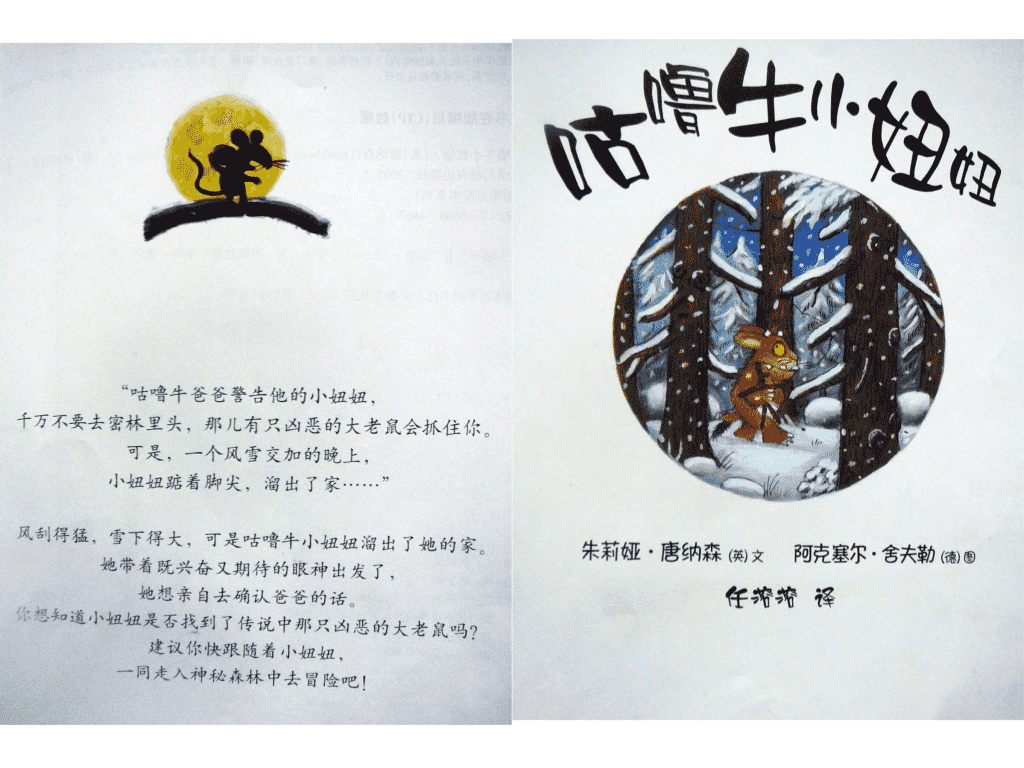 “咕噜牛爸爸警告他的小妞妞,
千万不要去密林里头，那儿有只凶恶的大老鼠会抓住你。
可是，一个风雪交加的晚上，
小妞妞踮着脚尖，溜出了家……”
风刮得猛，雪下得大，可是咕噜牛小妞妞溜出了她的家。
她带着既兴奋又期待的眼神出发了，
她想亲自去确认爸爸的话。
你想知道小妞妞是否找到了传说中那只凶恶的大老鼠吗？
建议你快跟随着小妞妞，
一同走入神秘森林中去冒险吧！
咕噜牛小妞妞
朱莉娅·唐纳森 (英) 文 阿克塞尔·舍夫勒 (德) 图
任溶溶 译